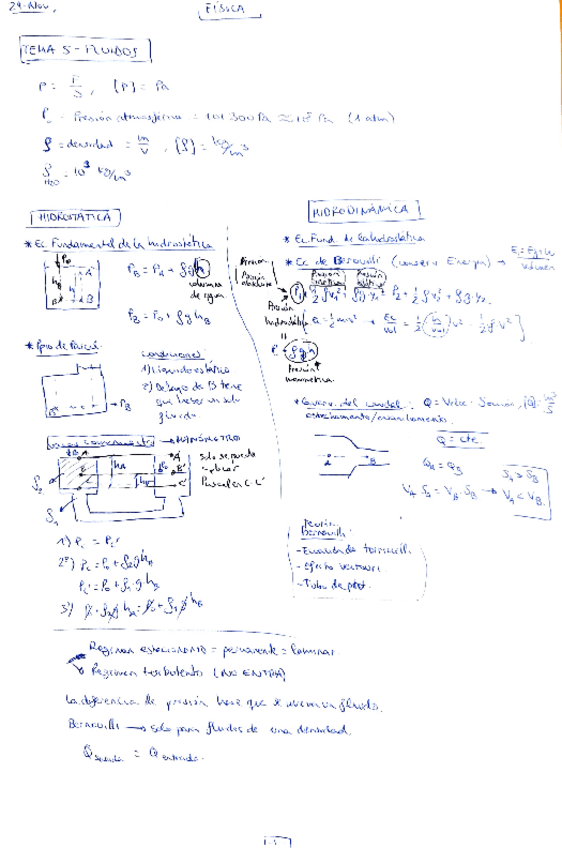 29-Nov.
FÍSICA
TEMA 5 - FLUIDOS
P = F/S, [P] = Pa
P₀ = Presión atmosférica = 101 300 Pa ≈ 10⁵ Pa (1 atm)
ρ = densidad = m/V, [ρ] = kg/m³
ρ H₂O = 10³ kg/m³
HIDROSTÁTICA
* Ec. Fundamental de la hidrostática
P₀
A
B
h
P_B = P_A + ρgh
columna de agua
P_B = P₀ + ρgh_B
* Ppio de Pascal
condiciones
1) Líquido estático
2) Debajo de B tiene que haber un solo fluido
P_B
→ MANÓMETRO
Solo se puede aplicar Pascal en C-C'
ρ₂
ρ₁
1) P_C = P_C'
2º) P_C = P₀ + ρ₂gh_A
P_C' = P₀ + ρ₁·g h_B
3º) P₀ + ρ₂g h_A = P₀ + ρ₁g h_B
HIDRODINÁMICA
* Ec. Fund. de la hidrostática
* Ec. de Bernouilli (conserv. Energía) →
Presión
Presión absoluta
P₁ + ½ρv₁² + ρg·y₁ = P₂ + ½ρv₂² + ρg·y₂
Presión hidrostática
Ec = ½mv² → Ec/vol = ½(m/vol)v² = ½ρv²
P = ρgh
Presión manométrica
* Conserv. del caudal: Q = V·S, [Q] = m³/s
estrechamiento/ensanchamiento.
Q = cte
A
B
Q_A = Q_B
V_A S_A = V_B·S_B →
S_A > S_B
V_A < V_B
Teoría bernouilli
- Ecuación de torricelli
- Efecto venturi
- Tubo de pitot.
Regimen estacionario = permanente = laminar.
Regimen turbulento (NO ENTRA)
La diferencia de presión hace que se mueva un fluido.
Bernouilli → solo para fluidos de una densidad.
Q salida = Q entrada.